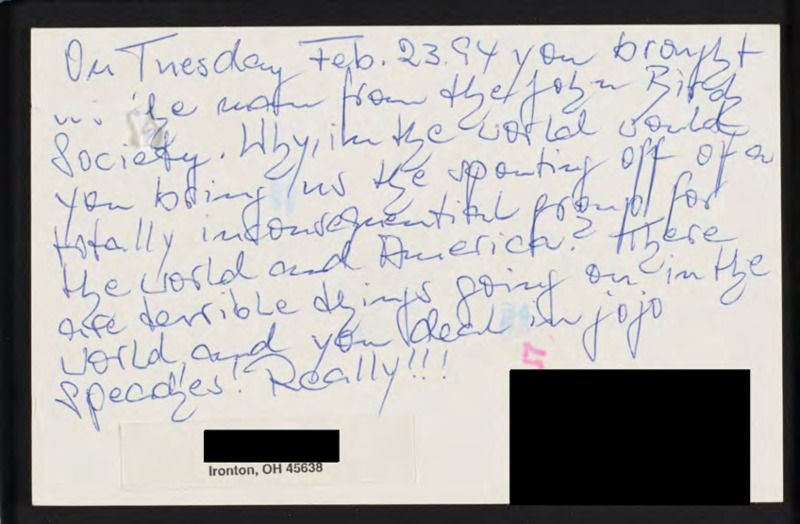 On Tuesday Feb. 23.94 you brought
us the man from the John Birch
Society. Why, in the world would
you bring us the spouting off of a
totally inconsequential group for
the world and America? There
are terrible things going on in the
world, and you deal in jojo
speeches! Really!!!
Ironton, OH 45638